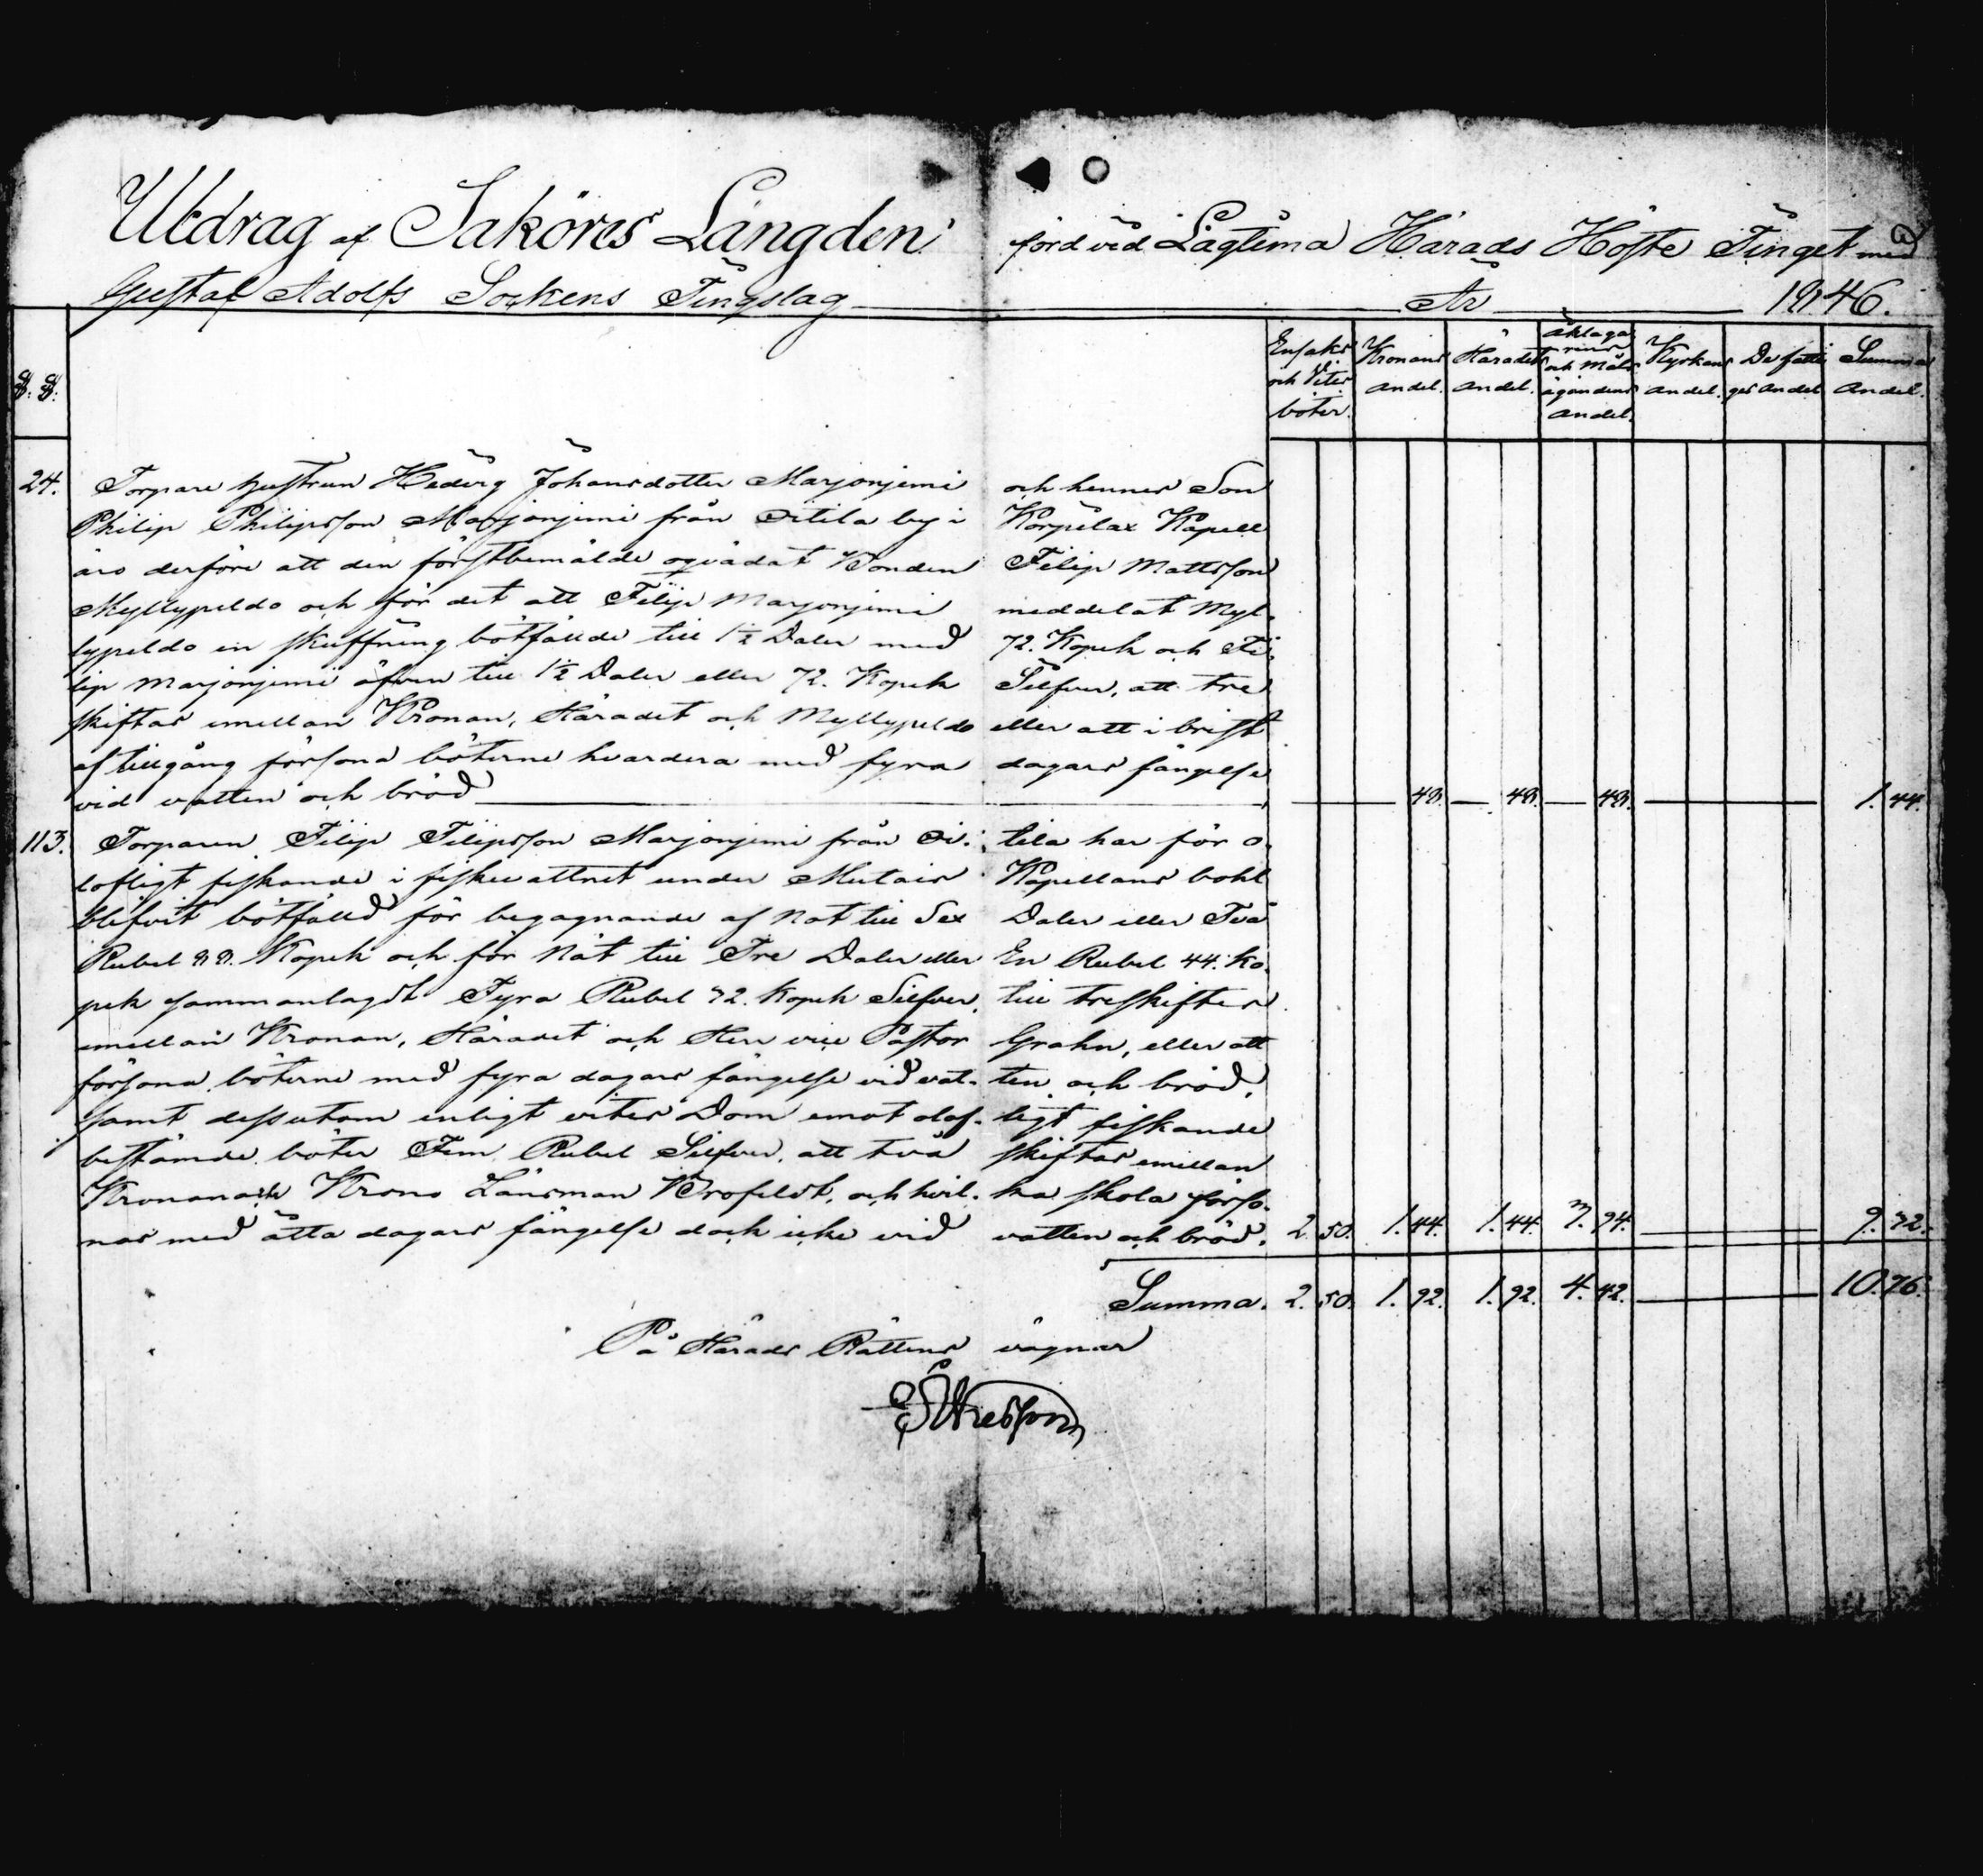 Utdrag af Saköres Längden förd vid Lagtima Härads Höste Tinget med
Gustaf Adolfs Sockens Tingslag År 1846.
§. §.
Ensaks och Vites böter.
Kronans andel.
Häradets andel.
åklagarens och Målsägandens andel.
Kyrkans andel.
De fattiges andel
Summa Andel.
24. Torpare hustrun Hedvig Johansdotter Marjonjemi och hennes Son
Philip Philipsson Marjonjemi från Sitila by i Korpilax Kapell
äro derföre att den förstbemälde oqvädat Bonden Filip Mattsson
Myllypeldo och för det att Filip Marjonjemi meddelat Myl-
lypeldo en skuffning bötfällde till 1½ Daler med 72. Kopek och Fi-
lip Marjonjemi äfven till 1½ Daler eller 72. Kopek Silfver, att tre
skiftas emellan Kronan, Häradet och Myllypeldo eller att i brist
af tillgång försona böterne hvardera med fyra dagars fängelse
vid vatten och bröd 48. 48. 48. 1. 44.
113. Torparen Filip Filipsson Marjonjemi från Si- tila har för o-
lofligt fiskande i fiskevattnet under Mutais Kapellans bohl
blifvit bötfälld för begagnande af Not till Sex Daler eller Två
Rubel 88. Kopek och för Nät till Tre Daler eller En Rubel 44. Ko-
pek sammanlagdt Fyra Rubel 32. Kopek Silfver, till treskiftes
emellan Kronan, Häradet och Herr vice Pastor Grahn, eller att
försona böterne med fyra dagars fängelse vid vat- ten och bröd,
samt dessutom enligt vites Dom emot olof- ligt fiskande
bestämde böter Fem Rubel Silfver, att två skiftas emellan
Kronan och Krono Länsman Brofeldt, och hvil- ka skola förso-
nas med åtta dagars fängelse dock icke vid vatten och bröd. 2. 50. 1. 44. 1. 44. 3. 94. 9. 32.
Summa. 2. 50. 1. 92. 1. 92. 4. 42. 10. 76.
På Härads Rättens vägnar